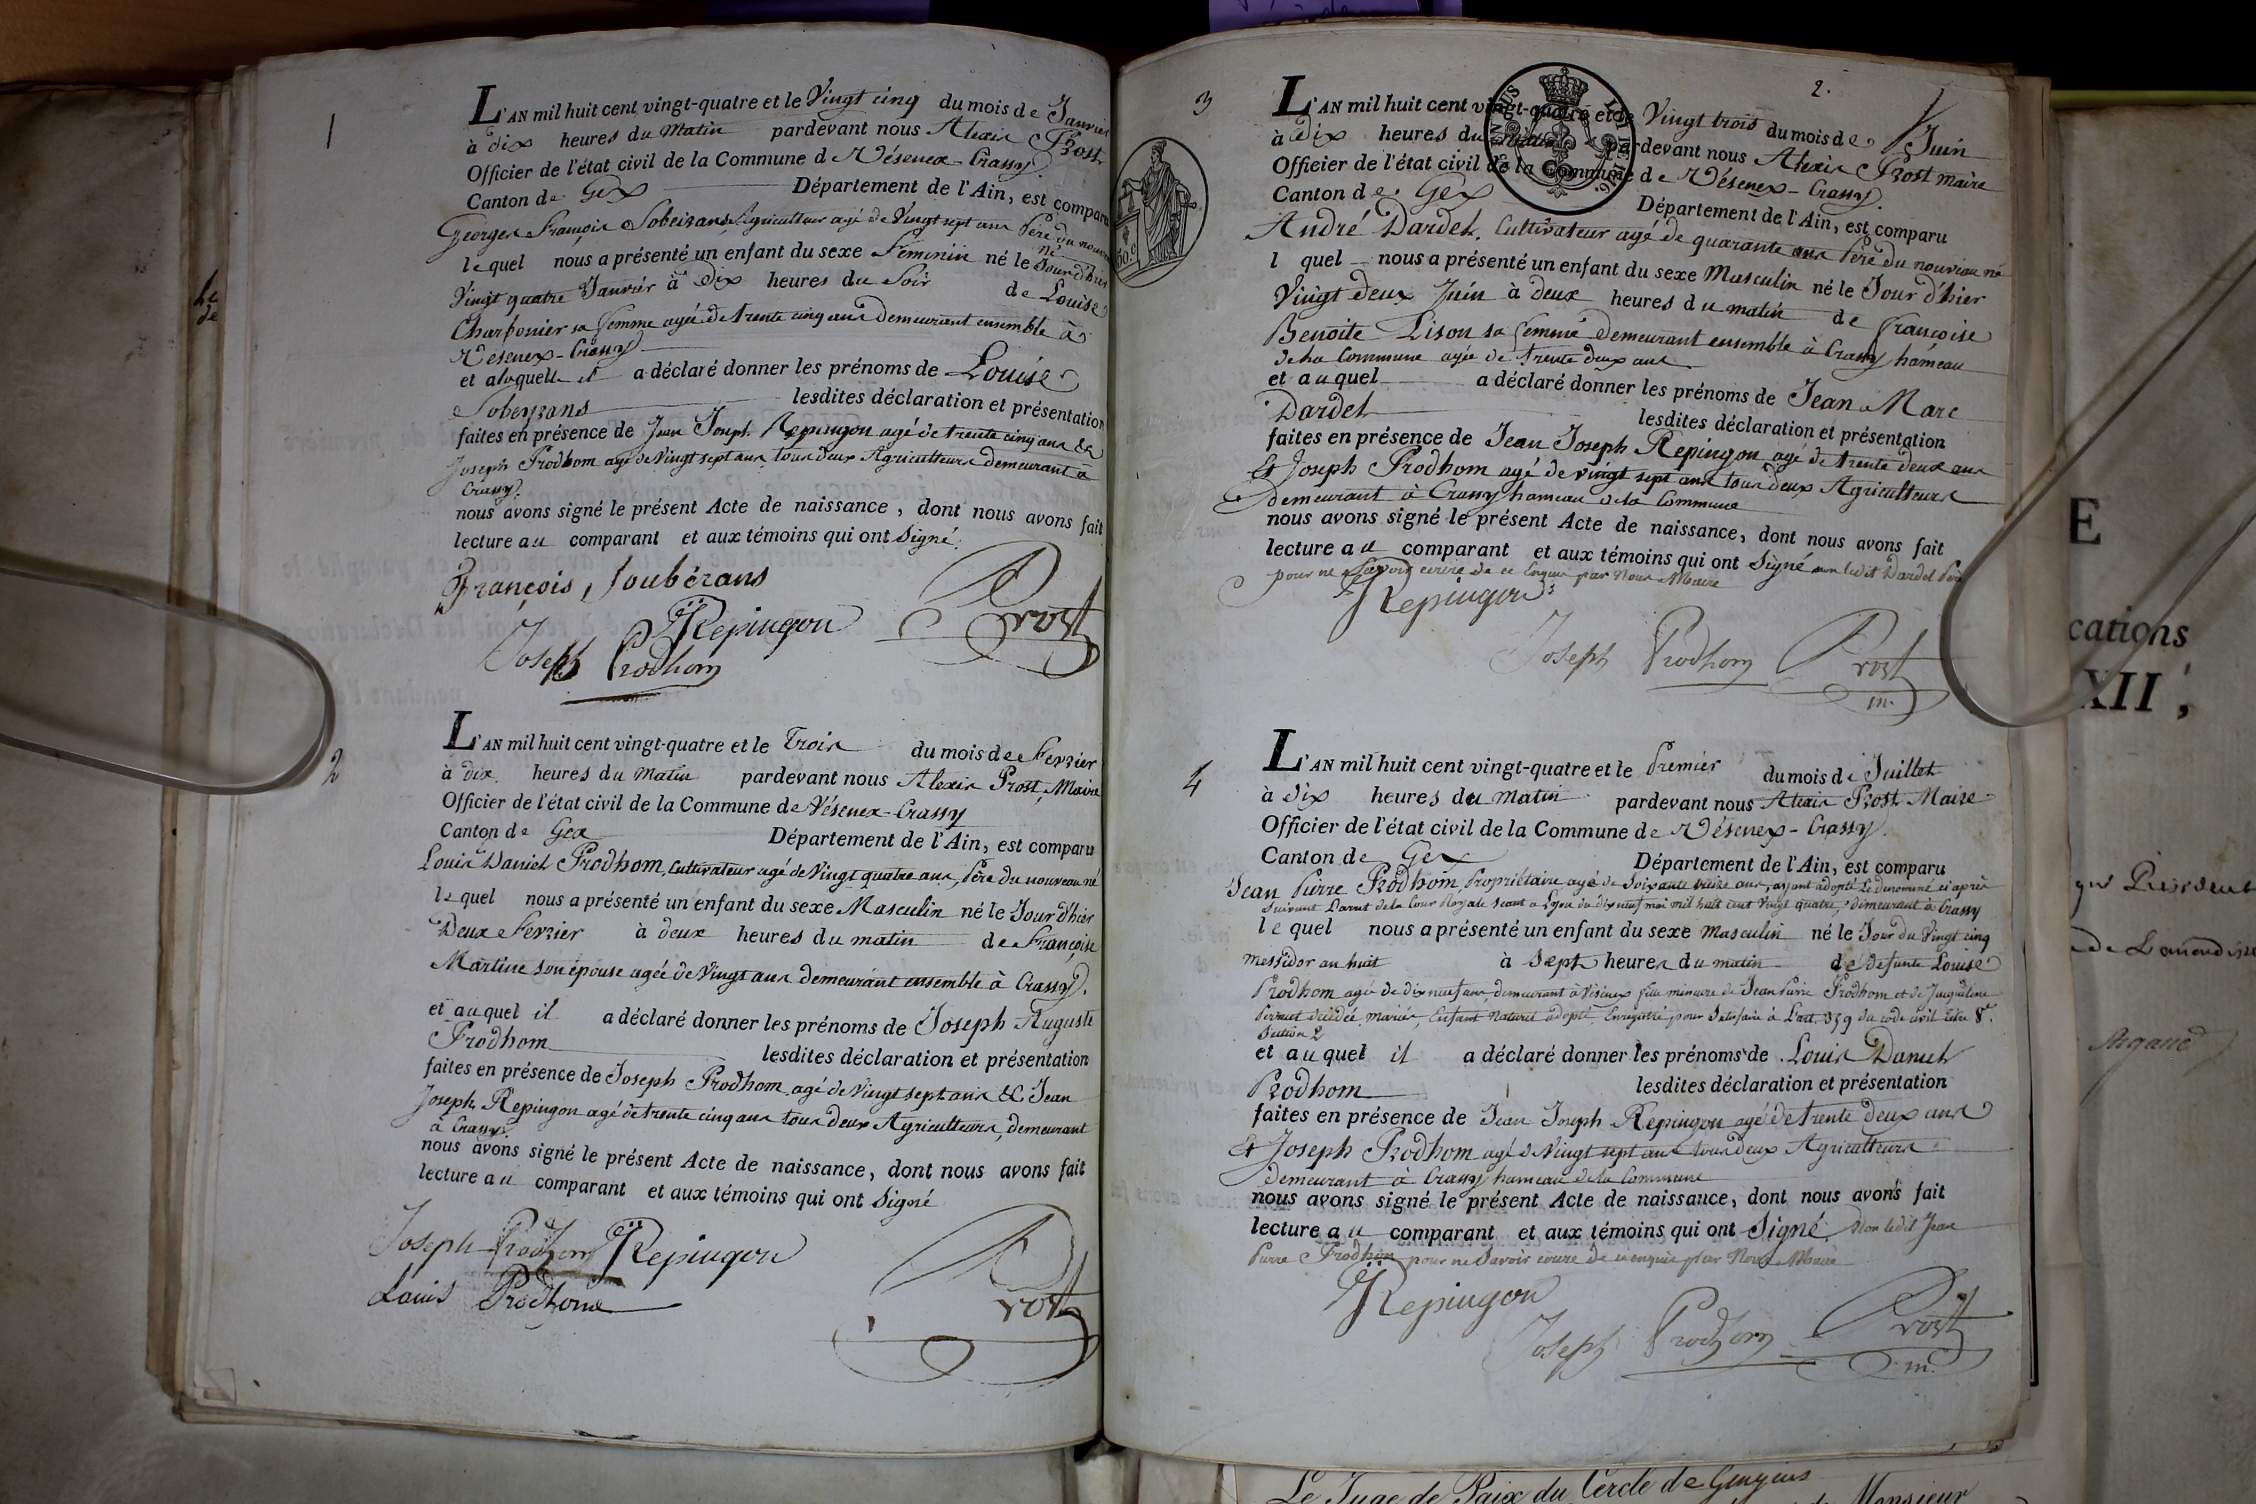 1
L'AN mil huit cent vingt-quatre et le Vingt cinq du mois de Janvier
à dix heures du Matin pardevant nous Alexis Prost
Officier de l'état civil de la Commune de Vésenex-Crassy
Canton de Gex Département de l'Ain, est comparu
Georges François Sobeirans, Agriculteur agé de Vingt sept ans Père du nouveau
né
lequel nous a présenté un enfant du sexe Feminin né le Jour d'hier
Vingt quatre Janvier à Dix heures du Soir de Louise
Charbonier sa femme agée de trente cinq ans demeurant ensemble à
Vésenex-Crassy
et a laquelle il a déclaré donner les prénoms de Louise
Sobeyrans lesdites déclaration et présentation
faites en présence de Jean Joseph Repingon agé de trente cinq ans &
Joseph Prodhom agé de Vingt sept ans, tous deux Agriculteurs demeurant à
Crassy.
nous avons signé le présent Acte de naissance, dont nous avons fait
lecture au comparant et aux témoins qui ont Signé.
François, Soubérans
JJRepingon
Prost
Joseph Prodhom
2
L'AN mil huit cent vingt-quatre et le Trois du mois de Fevrier
à dix heures du Matin pardevant nous Alexis Prost, Maire
Officier de l'état civil de la Commune de Vésenex-Crassy
Canton de Gex Département de l'Ain, est comparu
Louis Daniel Prodhom, Cultivateur agé de Vingt quatre ans, Père du nouveau né
lequel nous a présenté un enfant du sexe Masculin né le Jour d'hier
Deux Fevrier à deux heures du matin de Françoise
Martine son épouse agée de Vingt ans demeurant ensemble à Crassy.
et au quel il a déclaré donner les prénoms de Joseph Auguste
Prodhom lesdites déclaration et présentation
faites en présence de Joseph Prodhom, agé de Vingt sept ans & Jean
Joseph Repingon agé de trente cinq ans tous deux Agriculteurs, demeurant
à Crassy.
nous avons signé le présent Acte de naissance, dont nous avons fait
lecture au comparant et aux témoins qui ont Signé
Joseph Prodhom JJRepingon
Louis Prodhom
Prost
2.
3
L'AN mil huit cent vingt-quatre et le Vingt trois du mois de Juin
à Dix heures du matin pardevant nous Alexis Prost maire
Officier de l'état civil de la Commune de Vésenex-Crassy.
Canton de Gex Département de l'Ain, est comparu
André Dardel, Cultivateur agé de quarante ans Père du nouveau né
lequel nous a présenté un enfant du sexe Masculin né le Jour d'hier
Vingt deux Juin à deux heures du matin de Françoise
Benoite Lison sa femme demeurant ensemble à Crassy hameau
de la Commune agée de trente deux ans
et au quel a déclaré donner les prénoms de Jean Marc
Dardel lesdites déclaration et présentation
faites en présence de Jean Joseph Repingon agé de trente deux ans
Et Joseph Prodhom agé de vingt sept ans tous deux Agriculteurs
demeurant à Crassy hameau de la Commune
nous avons signé le présent Acte de naissance, dont nous avons fait
lecture au comparant et aux témoins qui ont Signé non ledit Dardel Père
pour ne Savoir écrire de ce Enquis par Nous Maire
JJRepingon
Joseph Prodhom Prost
m.
4
L'AN mil huit cent vingt-quatre et le Premier du mois de Juillet
à dix heures du Matin pardevant nous Alexis Prost Maire
Officier de l'état civil de la Commune de Vésenex-Crassy.
Canton de Gex Département de l'Ain, est comparu
Jean Pierre Prodhom, Propriétaire agé de Soixante ans, ayant adopté le denommé ci après
Suivant L'arret de la Cour Royale Seant a Lyon du dix neuf mai mil huit cent Vingt quatre, demeurant à Crassy
lequel nous a présenté un enfant du sexe masculin né le Jour du Vingt cinq
messidor an huit à Sept heures du matin de defunte Louise
Prodhom agée de dix neuf ans, demeurant à Vésenex fille mineure de Jean Pierre Prodhom et de Jacqueline
Perruet décédée mariés, Enfant Naturel adopté. Enregistré pour Satisfaire à L'art. 359 du code civil titre 8.
Section 2
et au quel il a déclaré donner les prénoms de Louis Daniel
Prodhom lesdites déclaration et présentation
faites en présence de Jean Joseph Repingon agé de trente deux ans
Et Joseph Prodhom agé de Vingt sept ans tous deux Agriculteurs
demeurant à Crassy hameau de la Commune
nous avons signé le présent Acte de naissance, dont nous avons fait
lecture au comparant et aux témoins qui ont Signé. Non ledit Jean
Pierre Prodhom pour ne Savoir écrire de ce enquis par Nous Maire
JJRepingon
Joseph Prodhom Prost
m.
E
cations
XII ;
Président
Le Juge de Paix du Cercle de Gingins
Monsieur